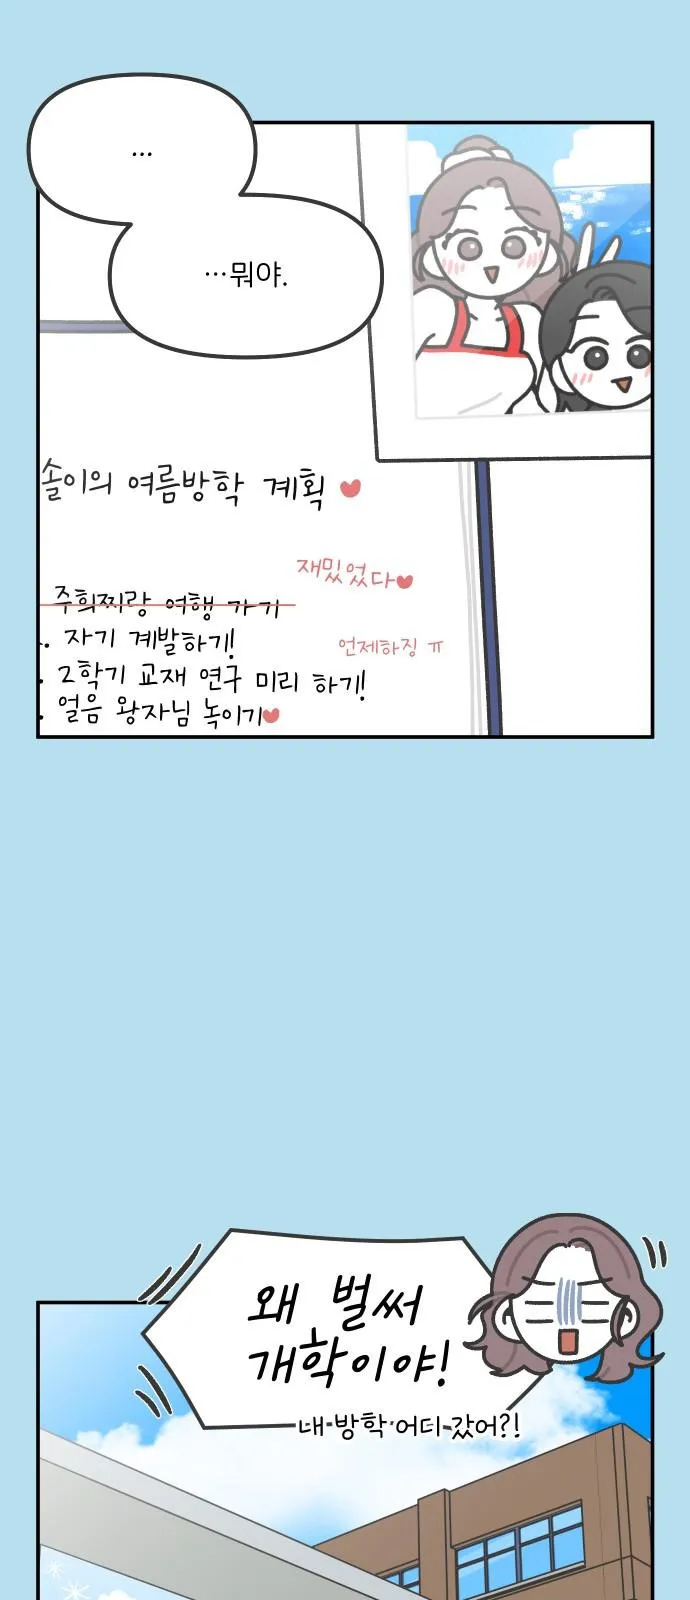 …
…뭐야.
솔이의 여름방학 계획
재밌었다
주희찌랑 여행 가기
자기 계발하기!
언제하징 ㅠ
2학기 교재 연구 미리 하기!
얼음 왕자님 녹이기
왜 벌써
개학이야!
내 방학 어디 갔어?!